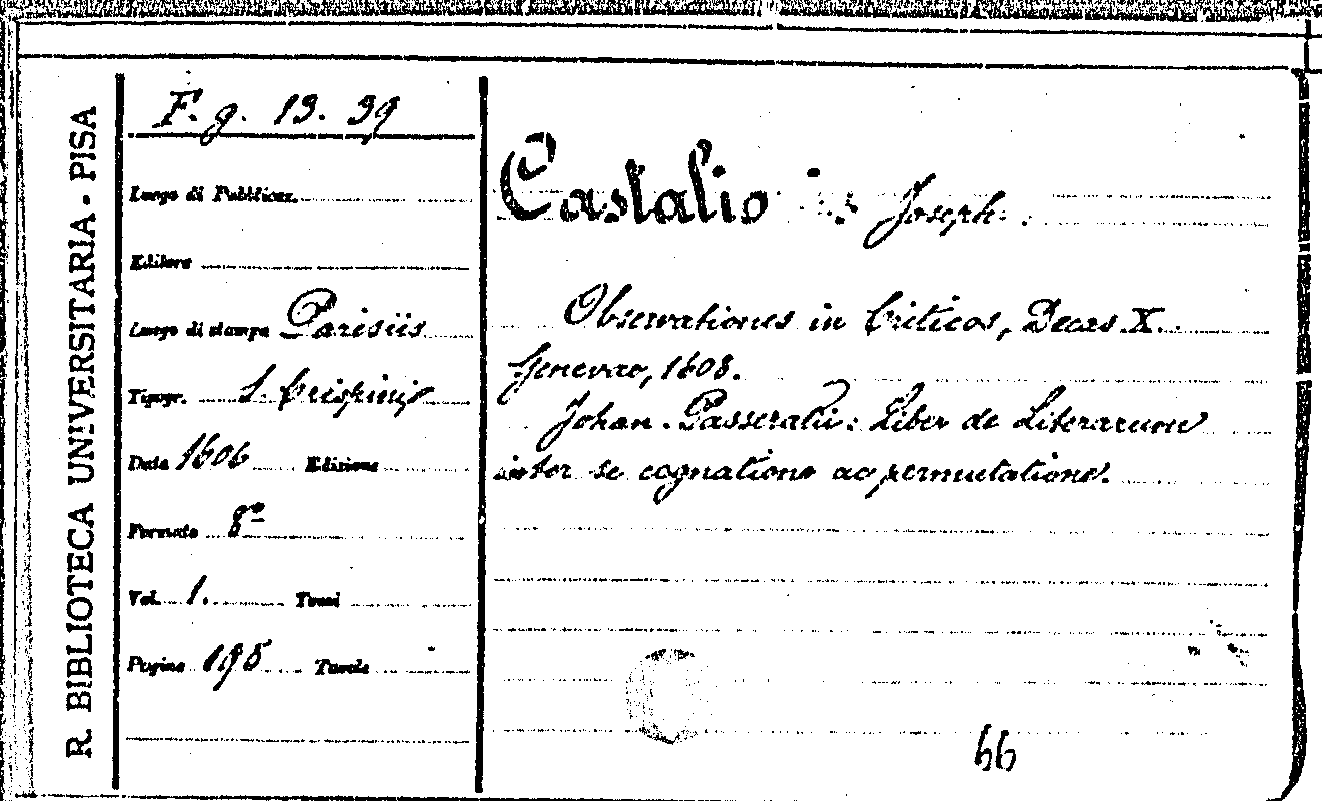 R. BIBLIOTECA UNIVERSITARIA - PISA
F. g. 13. 39
Luogo di Pubblicaz.
Editore
Luogo di stampa Parisiis
Tipogr. S. Crispinis
Data 1606 Edizione
Formato 8º
Vol. 1. Tomi
Pagine 195 Tavole
Castalio Joseph.
Observationes in Criticos, Decas X.
Genevae, 1608.
Johan. Passeratii: Liber de Literarum
inter se cognatione ac permutatione.
66